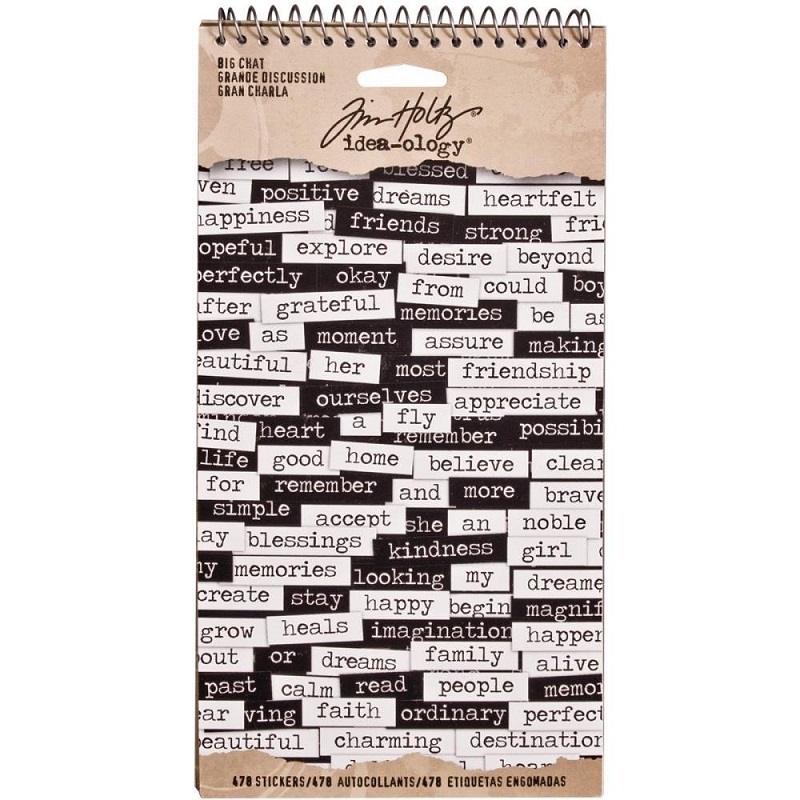 BIG CHAT
GRANDE DISCUSSION
GRAN CHARLA
Tim Holtz®
idea-ology®
free blessed
ven positive dreams heartfelt
appiness d friends strong frie
opeful explore desire beyond
perfectly okay from could boy
after grateful memories be as
love as moment assure making
eautiful her most friendship
discover ourselves appreciate
find heart a fly remember possibi
life good home believe clear
for remember and more brave
simple accept she an noble
ay blessings kindness girl
my memories looking my dreame
create stay happy begin magnif
grow heals imagination happen
out or dreams family alive
past calm read people memor
ear ving faith ordinary perfect
beautiful charming destination
478 STICKERS/478 AUTOCOLLANTS/478 ETIQUETAS ENGOMADAS